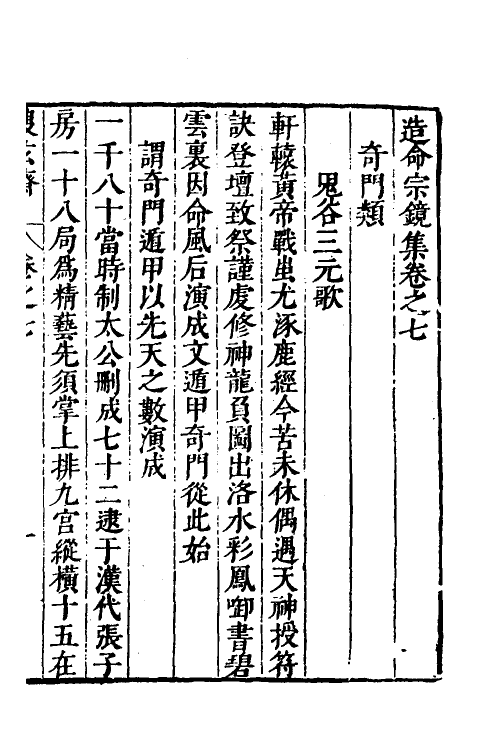 造命宗鏡集卷之七
奇門類
鬼谷三元歌
軒轅黃帝戰蚩尤涿鹿經今苦未休偶遇天神授符
訣登壇致祭謹虔修神龍負圖出洛水彩鳳啣書碧
雲裏因命風后演成文遁甲奇門從此始
謂奇門遁甲以先天之數演成
一千八十當時制太公刪成七十二逮于漢代張子
房一十八局爲精藝先須掌上排九宫縱橫十五在
卷之七
一